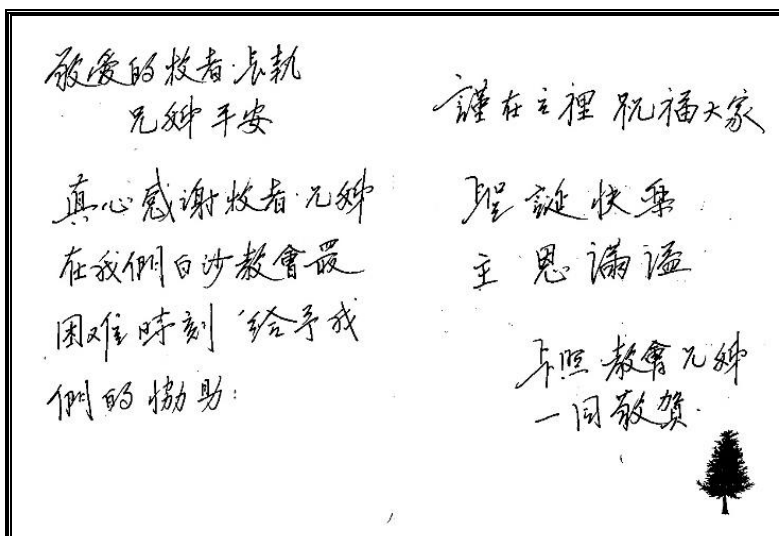 敬愛的牧者.長執
兄姊平安
真心感谢牧者.兄姊
在我們白沙教會最
困难時刻 給予我
們的協助:
謹在主裡祝福大家
聖誕快樂
主恩滿溢
照.教會兄姊
一同敬賀.